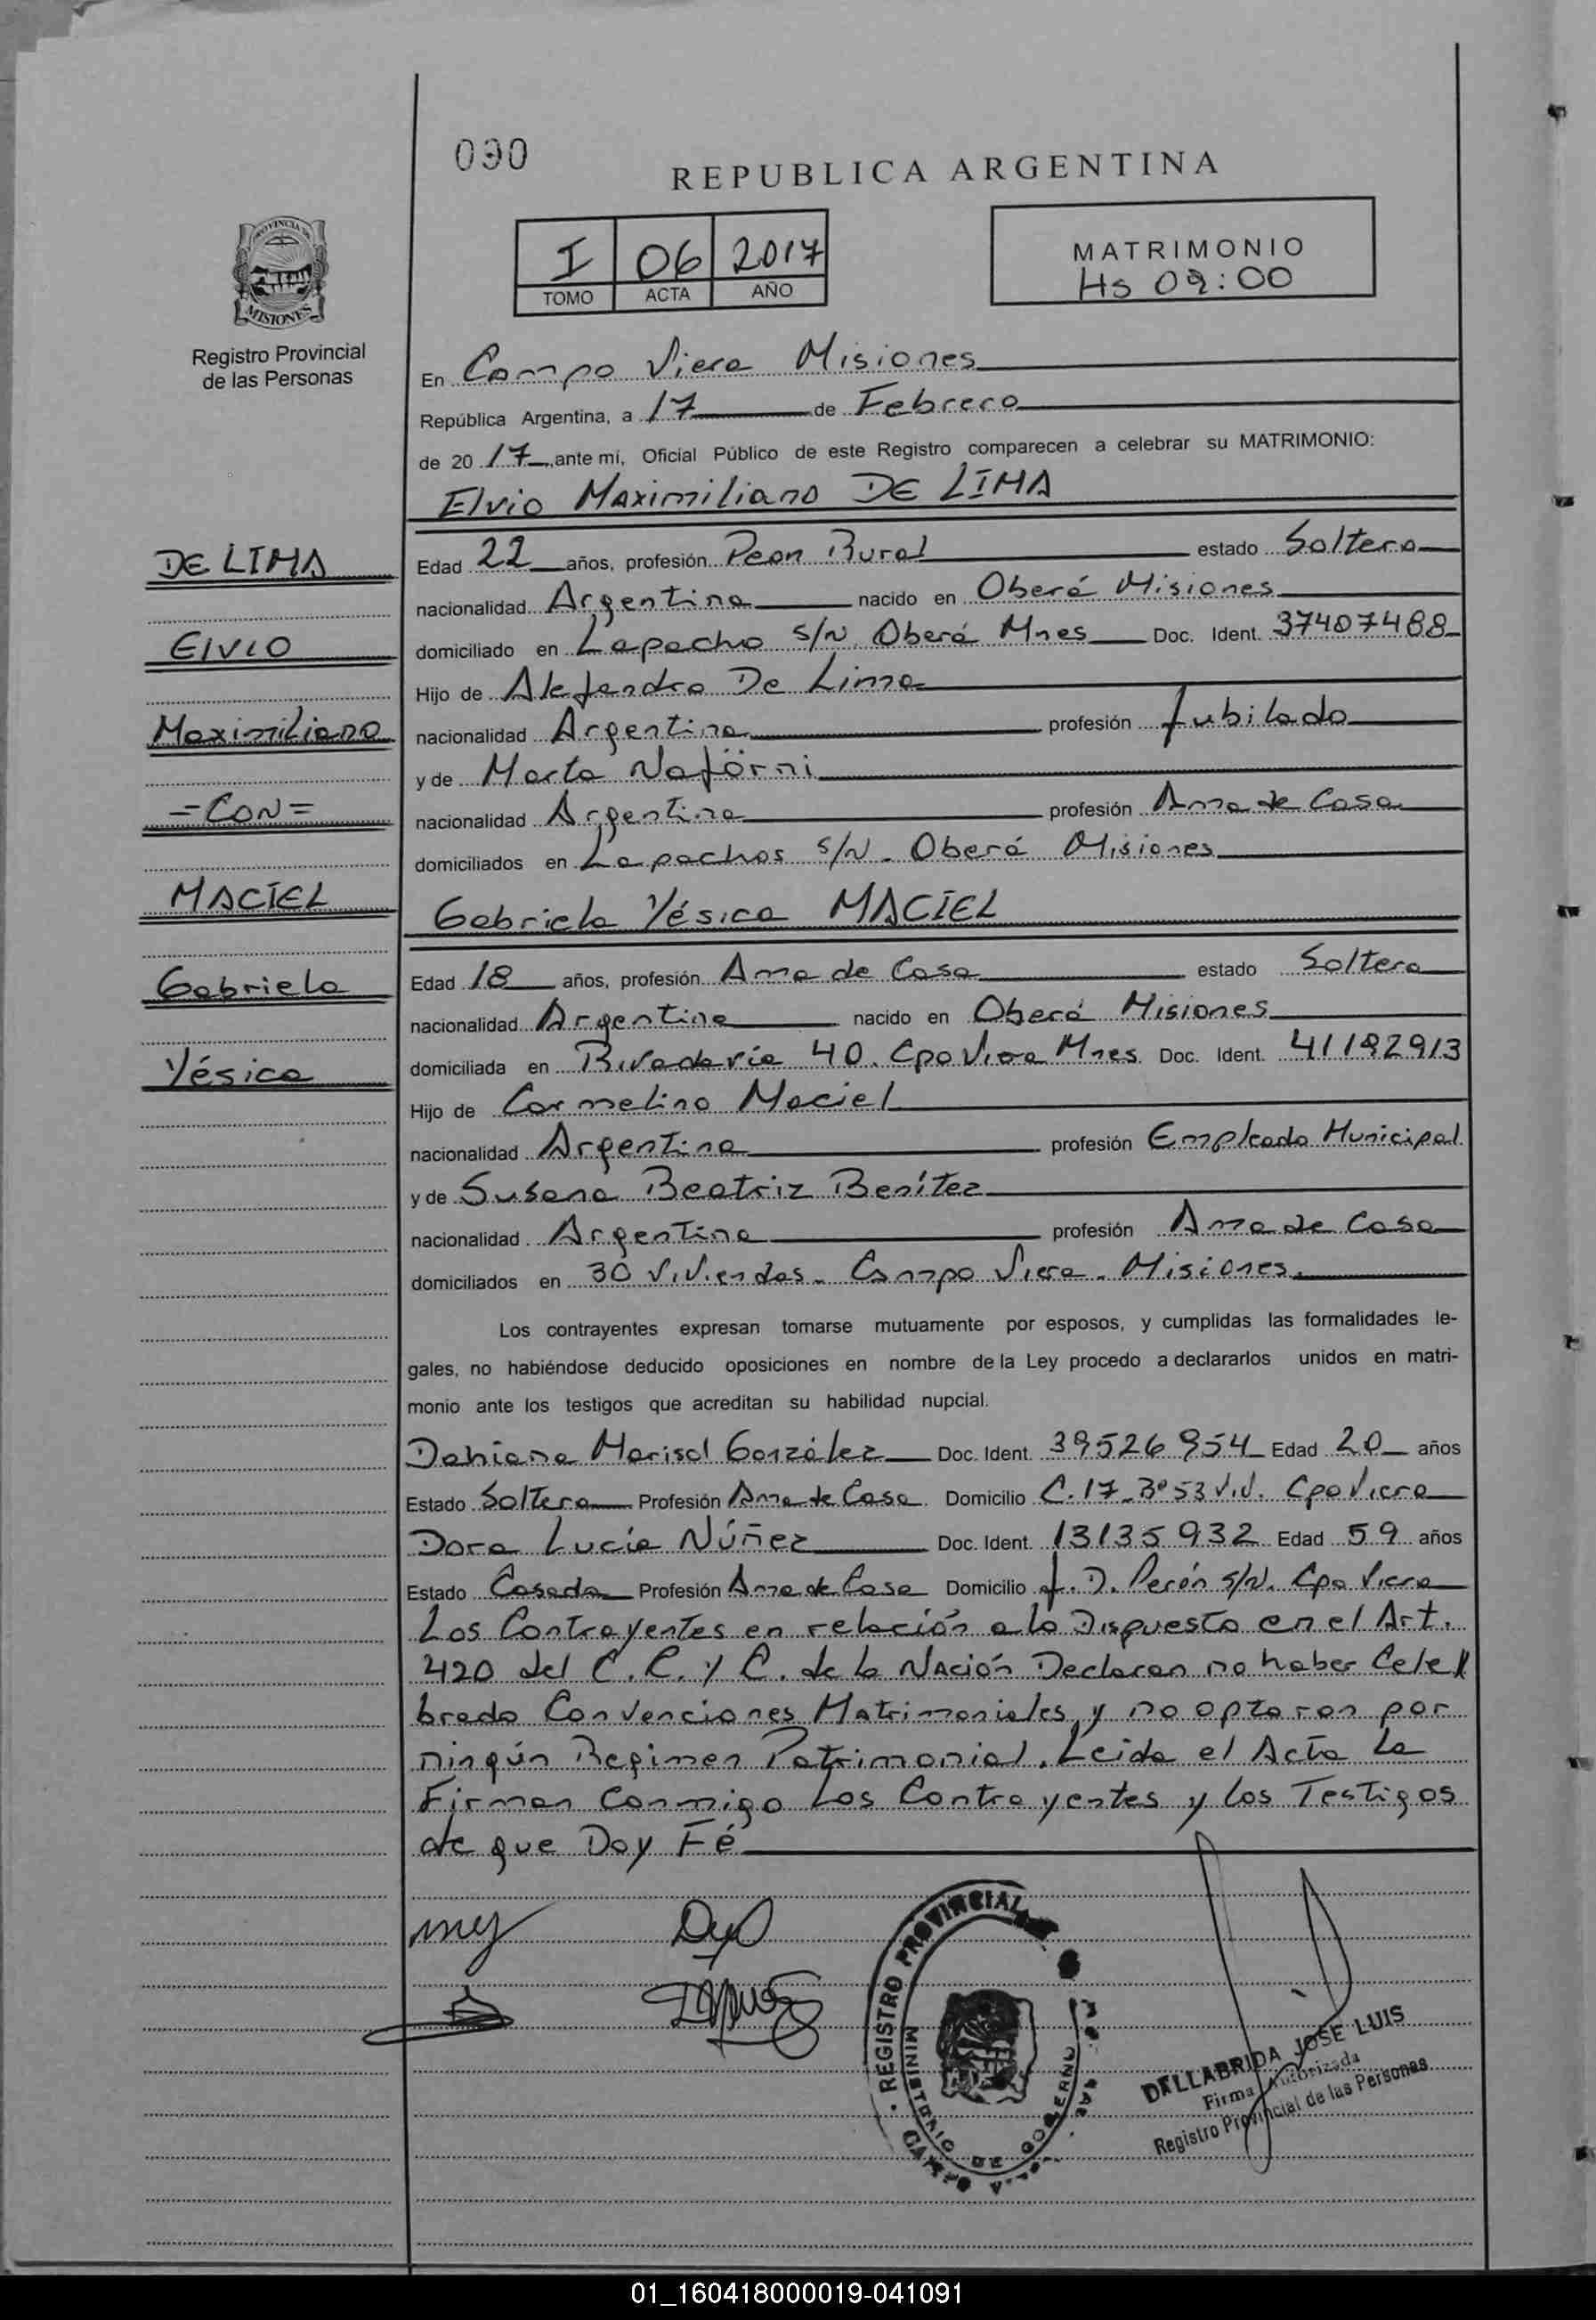 090
REPUBLICA ARGENTINA
PROVINCIA DE
MISIONES
Registro Provincial
de las Personas
I 06 2017
TOMO ACTA AÑO
MATRIMONIO
Hs 09:00
En Campo Viera Misiones
República Argentina, a 17 de Febrero
de 20 17 ante mí, Oficial Público de este Registro comparecen a celebrar su MATRIMONIO:
Elvio Maximiliano DE LIMA
DE LIMA
Elvio
Maximiliano
=CON=
MACIEL
Gabriela
Yésica
Edad 22 años, profesión Peon Rural estado Soltero
nacionalidad Argentina nacido en Oberá Misiones
domiciliado en Lapacho s/N Oberá Mnes Doc. Ident. 37407488
Hijo de Alejandro De Lima
nacionalidad Argentina profesión Jubilado
y de Marta Najörni
nacionalidad Argentina profesión Ama de Casa
domiciliados en Lapachos s/N - Oberá Misiones
Gabriela Yésica MACIEL
Edad 18 años, profesión Ama de Casa estado Soltera
nacionalidad Argentina nacido en Oberá Misiones
domiciliada en Rivadavia 40. Cpo Viera Mnes. Doc. Ident. 41192913
Hijo de Carmelino Maciel
nacionalidad Argentina profesión Empleado Municipal
y de Susana Beatriz Benítez
nacionalidad Argentina profesión Ama de Casa
domiciliados en 30 Viviendas - Campo Viera - Misiones.
Los contrayentes expresan tomarse mutuamente por esposos, y cumplidas las formalidades le-
gales, no habiéndose deducido oposiciones en nombre de la Ley procedo a declararlos unidos en matri-
monio ante los testigos que acreditan su habilidad nupcial.
Dahiana Marisol González Doc. Ident. 39526954 Edad 20 años
Estado Soltera Profesión Ama de Casa Domicilio C.17-Bº53 Viv. Cpo Viera
Dora Lucía Núñez Doc. Ident. 13135932 Edad 59 años
Estado Casada Profesión Ama de Casa Domicilio J.D. Perón s/N. Cpo Viera
Los Contrayentes en relación a lo Dispuesto en el Art.
420 del C.C. y C. de la Nación Declaran no haber Cele
brado Convenciones Matrimoniales y no optaron por
ningún Regimen Patrimonial. Leida el Acta La
Firman Conmigo Los Contrayentes y Los Testigos
de que Doy Fé
REGISTRO PROVINCIAL
MINISTERIO DE GOBIERNO
DELLABRIDA JOSE LUIS
Firma Autorizada
Registro Provincial de las Personas
01_160418000019-041091